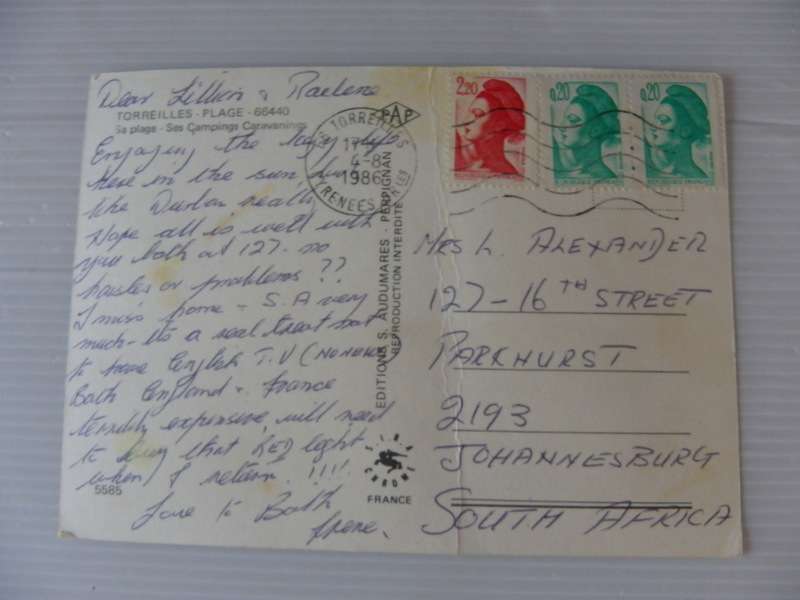 Dear Lillian & Raelene
TORREILLES - PLAGE - 66440
Sa plage - Ses Campings Caravanings
Enjoying the lazy life
here in the sun,
like Durban really
Hope all is well with
you both at 127 - no
hassles or problems ??
I miss home - S.A very
much - its a real treat not
to have English T.V
Both England & France
terribly expensive, will need
to buy that RED light
when I return. !!!!
5585
Love to Both
Irene.
TORREILLES
17
4-8
1986
PYRENEES
PAP
EDITIONS S. AUDUMARES - PERPIGNAN
REPRODUCTION INTERDITE
CHROME
FRANCE
2,20
0,20
0,20
MRS L. ALEXANDER
127-16TH STREET
PARKHURST
2193
JOHANNESBURG
SOUTH AFRICA